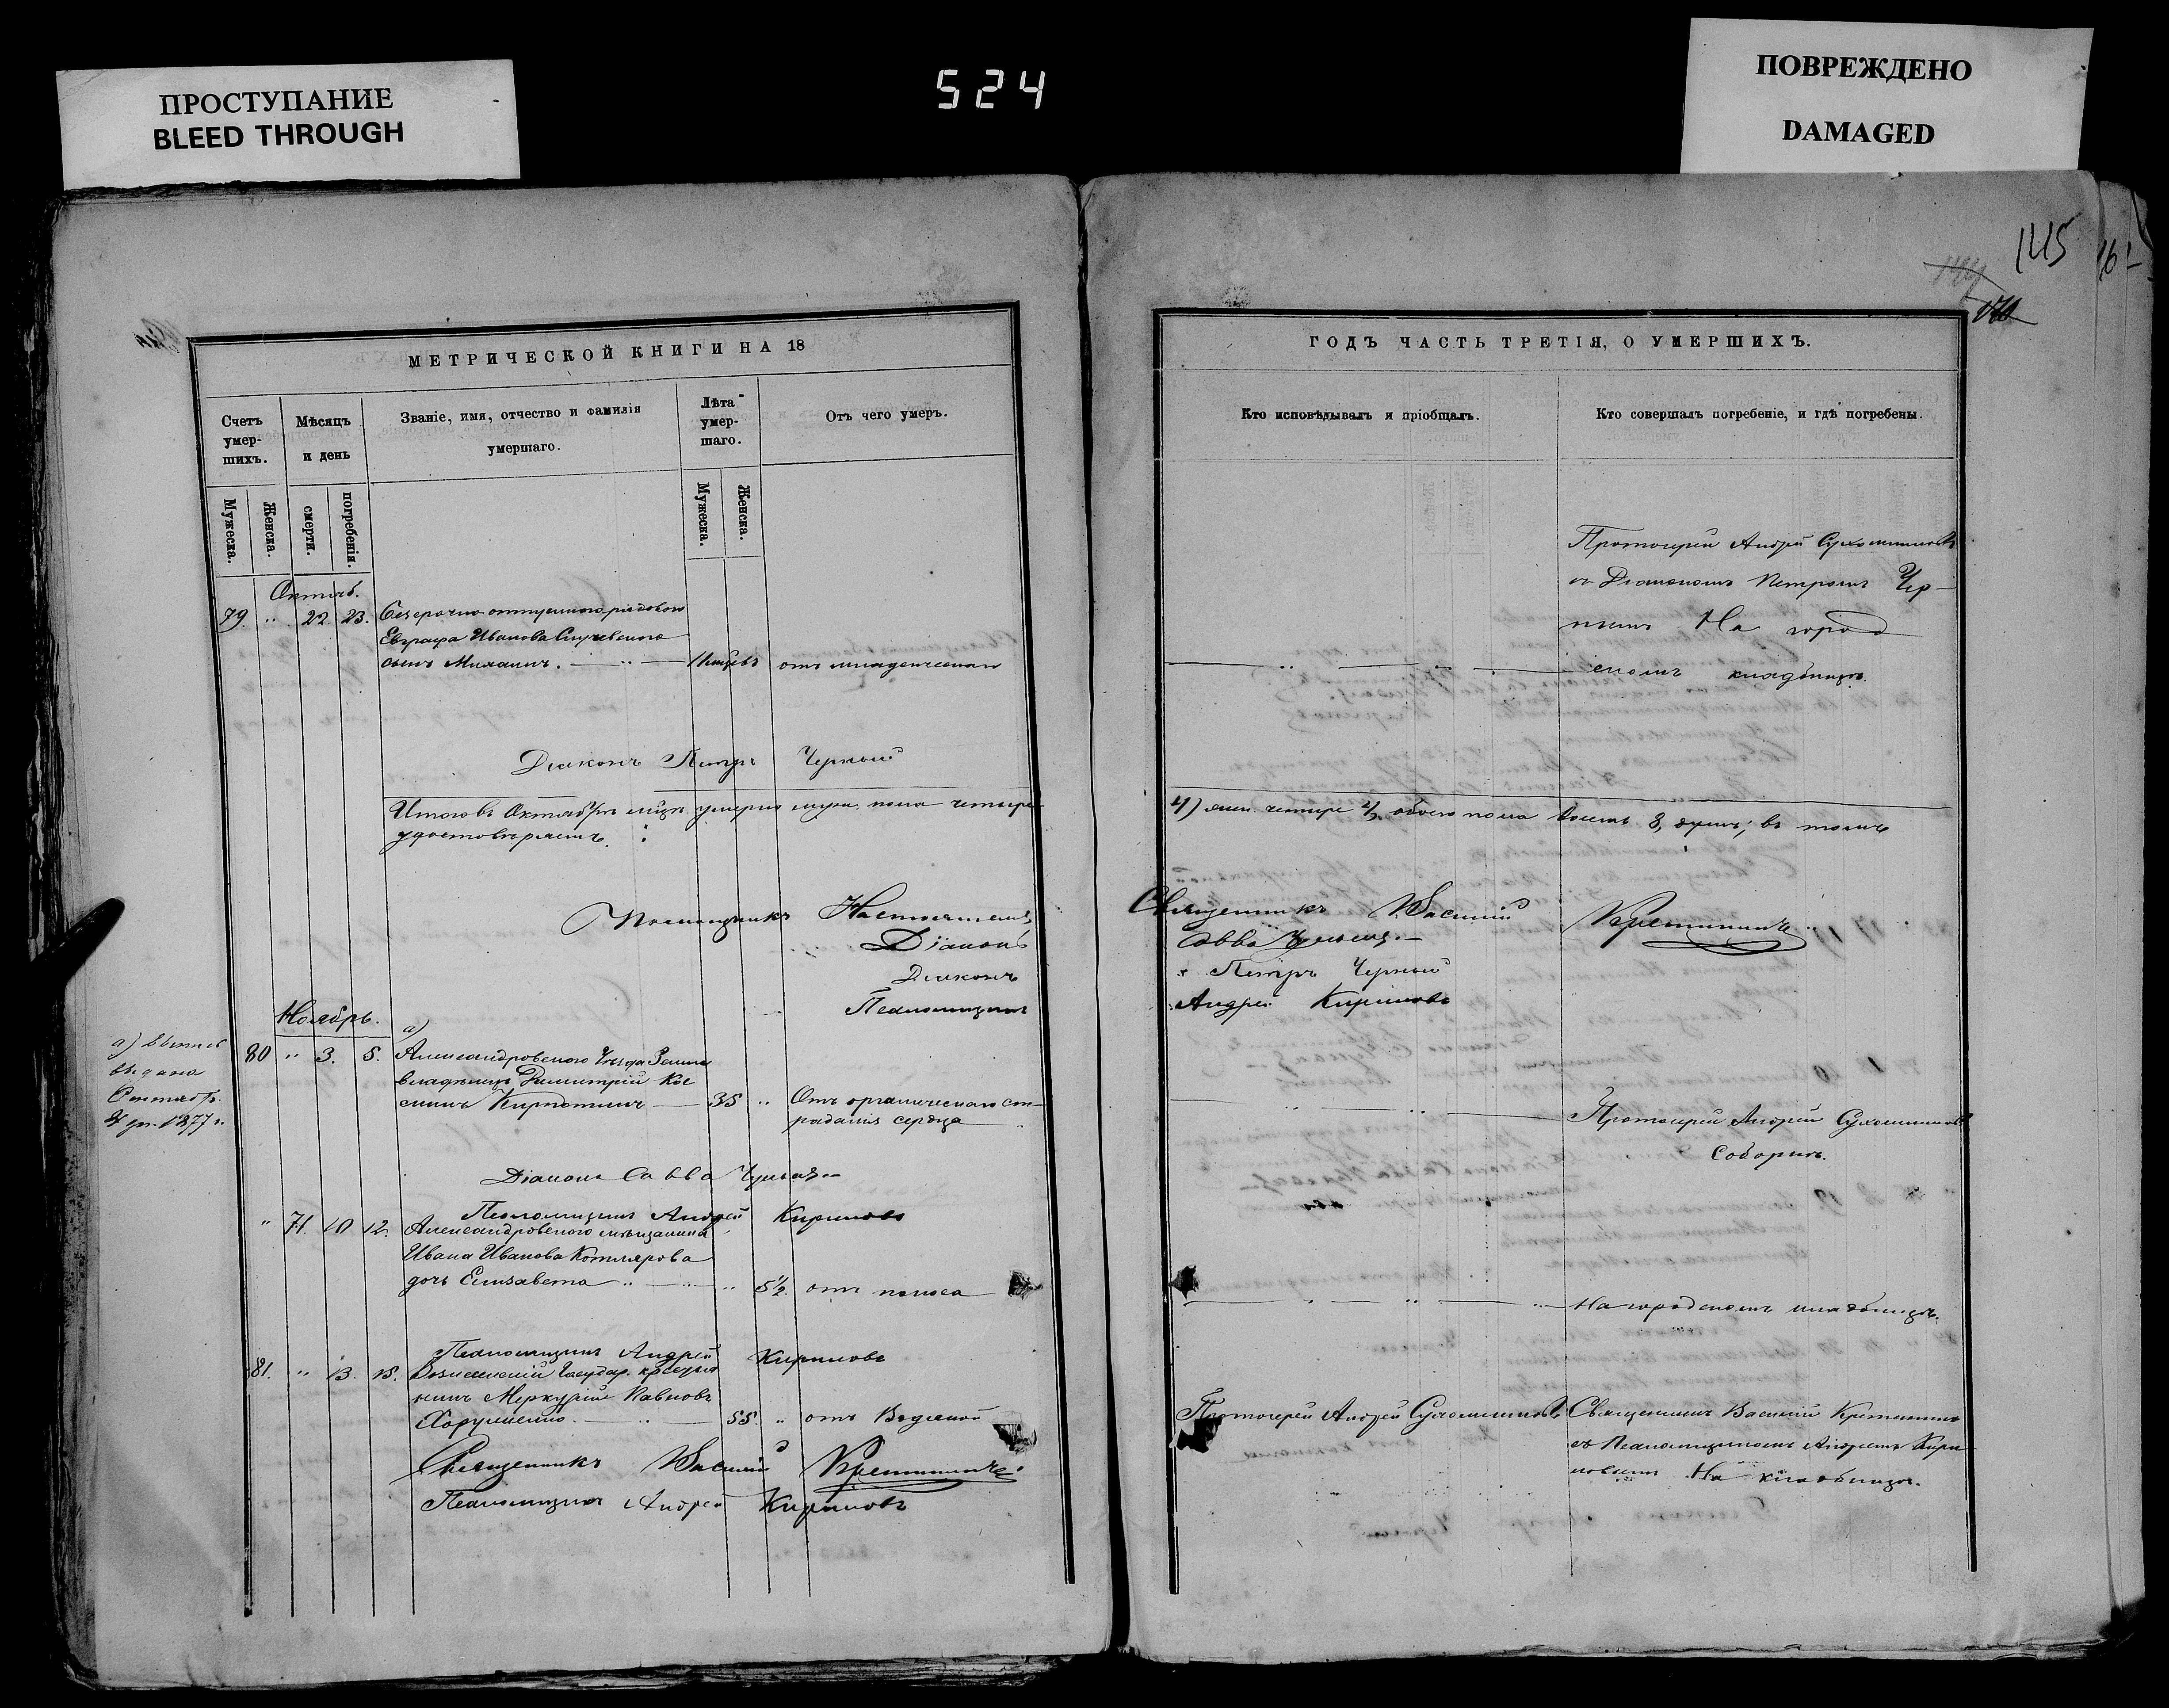 ПРОСТУПАНИЕ
BLEED THROUGH
524
ПОВРЕЖДЕНО
DAMAGED
145
МЕТРИЧЕСКОЙ КНИГИ НА 18
Счетъ умер-шихъ.
Мѣсяцъ и день
Званіе, имя, отчество и фамилія умершаго.
Лѣта умер-шаго.
Отъ чего умеръ.
Мужеска.
Женска.
смерти.
погребенія.
Мужеска.
Женска.
Октяб.
79. " 22. 23. Безсрочно-отпускнаго рядоваго
Евграфа Иванова
сынъ Михаилъ. отъ младенческой
Діаконъ Петръ Черный
Итого въ Октябрѣ мцѣ умерло муж. пола четыре
удостовѣряемъ.
Помощникъ Настоятеля
Діаконъ
Діаконъ
Псаломщикъ
Ноябрь.
а)
80 " 3. 5. Александровскаго Уѣзда Земле
владѣлецъ Димитрій Кос
35 " Отъ органическаго стра
данія сердца
а)
выдана
Октября
1877 г.
Діаконъ Савва
Псаломщикъ Андрей Кириловъ
" 71. 10 12. Александровскаго мѣщанина
Ивана Иванова Котлярова
дочь Елисавета " 5½. отъ поноса
Псаломщикъ Андрей Кириловъ
81. " 13. 15. Государ. крестья
нинъ Меркурій Павловъ
55. " отъ Водяной
Священникъ Василій Кретининъ
Псаломщикъ Андрей Кириловъ
ГОДЪ ЧАСТЬ ТРЕТІЯ, О УМЕРШИХЪ.
Кто исповѣдывалъ и пріобщалъ.
Кто совершалъ погребеніе, и гдѣ погребены.
Протоіерей Андрей Сухомлиновъ
съ Діакономъ Петромъ Чер-
нымъ На город
скомъ кладбищѣ.
4) жен. четыре 4, обоего пола восемь 8, душъ; въ томъ
Священникъ Василій Кретининъ
Савва
Петръ Черный
Андрей Кириловъ
Протоіерей Андрей Сухомлиновъ
Соборнѣ.
На городскомъ кладбищѣ.
Протоіерей Андрей Сухомлиновъ Священникъ Василій Кретининъ
съ Псаломщикомъ Андреемъ Кири
ловымъ На кладбищѣ.